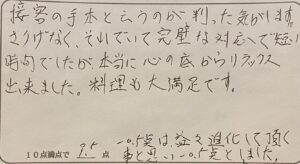 接客の手本というのが判った気がします。
さりげなく、それでいて完璧な対応で短い
時間でしたが、本当に心の底からリラックス
出来ました。料理も大満足です。
10点満点で 9.5 点
-0.5点は益々進化して頂く
事と思い-0.5点としました。